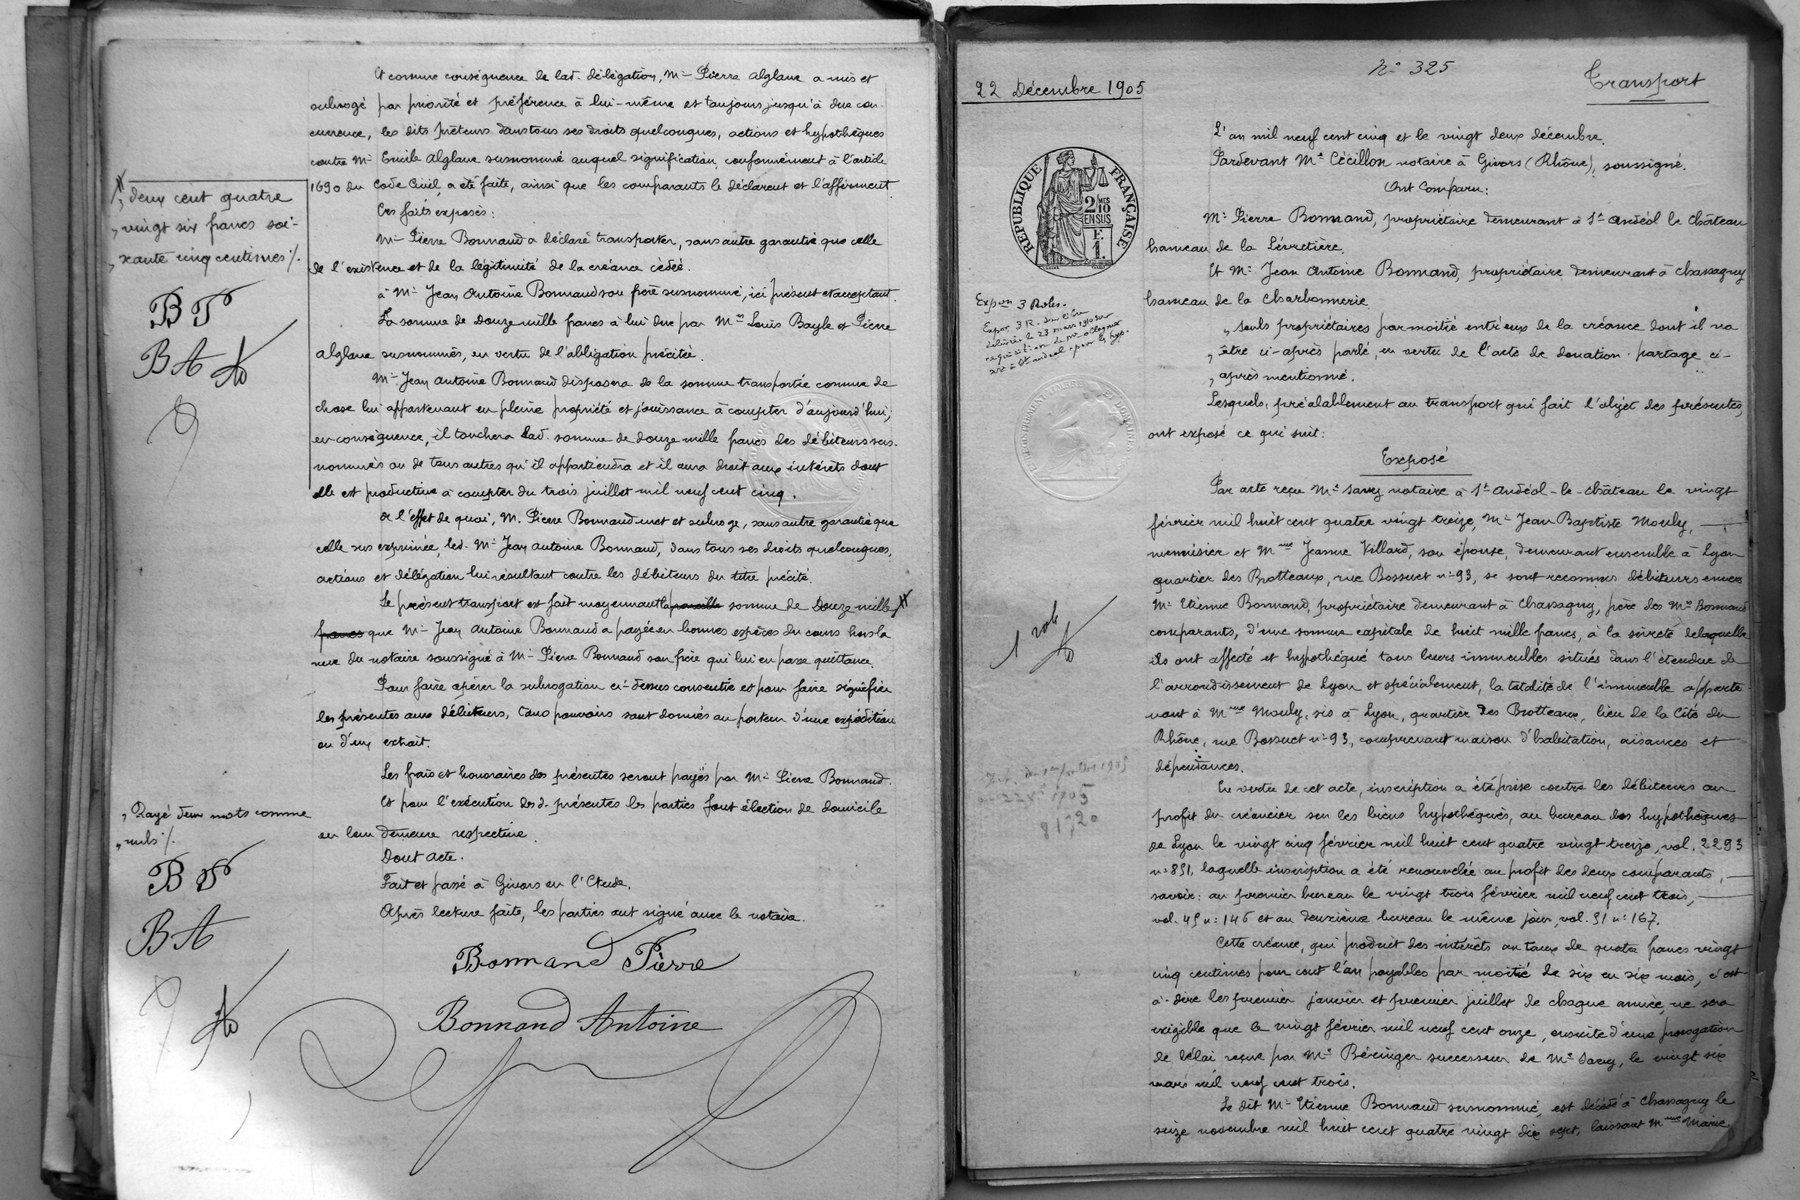 Et comme conséquence de lad. délégation, Mr Pierre Alglave a mis et
subrogé par priorité et préférence à lui-même et toujours jusqu'à due con-
currence, les dits prêteurs dans tous ses droits quelconques, actions et hypothèques
contre Mr Emile Alglave susnommé auquel signification conformément à l'article
1690 du Code Civil, a été faite, ainsi que les comparants le déclarent et l'affirment.
Ces faits exposés:
Mr Pierre Bonnand a déclaré transporter, sans autre garantie que celle
de l'existence et de la légitimité de la créance cédée.
à Mr Jean Antoine Bonnand son frère susnommé, ici présent et acceptant
La somme de Douze mille francs à lui due par Mrs Louis Bayle et Pierre
Alglave susnommés, en vertu de l'obligation précitée.
Mr Jean Antoine Bonnand disposera de la somme transportée comme de
chose lui appartenant en pleine propriété et jouissance à compter d'aujourd'hui,
en conséquence, il touchera lad. somme de douze mille francs des débiteurs sus-
nommés ou de tous autres qu'il appartiendra et il aura droit aux intérêts dont
elle est productive à compter du trois juillet mil neuf cent cinq.
à l'effet de quoi, M. Pierre Bonnand met et subroge, sans autre garantie que
celle sus exprimée, led. Mr Jean Antoine Bonnand, dans tous ses droits quelconques,
actions et délégation lui résultant contre les débiteurs du titre précité.
Le présent transport est fait moyennant la pareille somme de Douze mille
francs que Mr Jean Antoine Bonnand a payée en bonnes espèces du cours hors la
vue du notaire soussigné à Mr Pierre Bonnand son frère qui lui en passe quittance.
Pour faire opérer la subrogation ci-dessus consentie et pour faire signifier
les présentes aux débiteurs, tous pouvoirs sont donnés au porteur d'une expédition
ou d'un extrait.
Les frais et honoraires des présentes seront payés par Mr Pierre Bonnand.
Et pour l'exécution des d. présentes les parties font élection de domicile
en leur demeure respective.
Dont acte.
Fait et passé à Givors en l'Etude.
Après lecture faite, les parties ont signé avec le notaire.
Bonnand Pierre
Bonnand Antoine
deux cent quatre
vingt six francs soi-
xante cinq centimes /.
BP
BA
Rayé deux mots comme
nuls /.
BP
BA
22 Décembre 1905
N° 325
Transport
RÉPUBLIQUE FRANÇAISE
2 MES 10
EN SUS
F.
1.
L'an mil neuf cent cinq et le vingt deux décembre.
Pardevant Me Cécillon notaire à Givors (Rhône), soussigné.
Ont Comparu:
Mr Pierre Bonnand, propriétaire demeurant à St Andéol le Château
hameau de la Lévretière.
Et Mr Jean Antoine Bonnand, propriétaire demeurant à Chassagny
hameau de la Charbonnerie
„ seuls propriétaires par moitié entr'eux de la créance dont il va
„ être ci-après parlé, en vertu de l'acte de donation-partage ci-
„ après mentionné.
Lesquels, préalablement au transport qui fait l'objet des présentes,
ont exposé ce qui suit:
Exposé
Par acte reçu Me Savey notaire à St Andéol-le-Château le vingt
février mil huit cent quatre vingt treize, Mr Jean Baptiste Mouly,
menuisier et Mme Jeanne Villard, son épouse, demeurant ensemble à Lyon
quartier des Brotteaux, rue Bossuet n° 93, se sont reconnus débiteurs envers
Mr Etienne Bonnand, propriétaire demeurant à Chassagny, père des Mrs Bonnand
comparants, d'une somme capitale de huit mille francs, à la sûreté de laquelle
ils ont affecté et hypothéqué tous leurs immeubles situés dans l'étendue de
l'arrondissement de Lyon et spécialement, la totalité de l'immeuble apparte-
nant à Mme Mouly, sis à Lyon, quartier des Brotteaux, lieu de la Cité du
Rhône, rue Bossuet n° 93, comprenant maison d'habitation, aisances et
dépendances.
En vertu de cet acte, inscription a été prise contre les débiteurs au
profit du créancier sur les biens hypothéqués, au bureau des hypothèques
de Lyon le vingt cinq février mil huit cent quatre vingt treize, vol. 2293
n° 851, laquelle inscription a été renouvelée au profit des deux comparants,
savoir: au premier bureau le vingt trois février mil neuf cent trois,
vol. 45 n° 146 et au deuxième bureau le même jour, vol. 51 n° 167.
Cette créance, qui produit des intérêts au taux de quatre francs vingt
cinq centimes pour cent l'an payables par moitié de six en six mois, c'est
à-dire les premier janvier et premier juillet de chaque année, ne sera
exigible que le vingt février mil neuf cent onze, ensuite d'une prorogation
de délai reçue par Me Béringer successeur de Me Savey, le vingt six
mars mil neuf cent trois.
Le dit Mr Etienne Bonnand susnommé, est décédé à Chassagny le
seize novembre mil huit cent quatre vingt dix sept, laissant Mme Marie
Expon 3 Roles.
Expon 3 R.
délivrée le 23 mars 1910 sur
réquisition de
1 role
1905
81,20